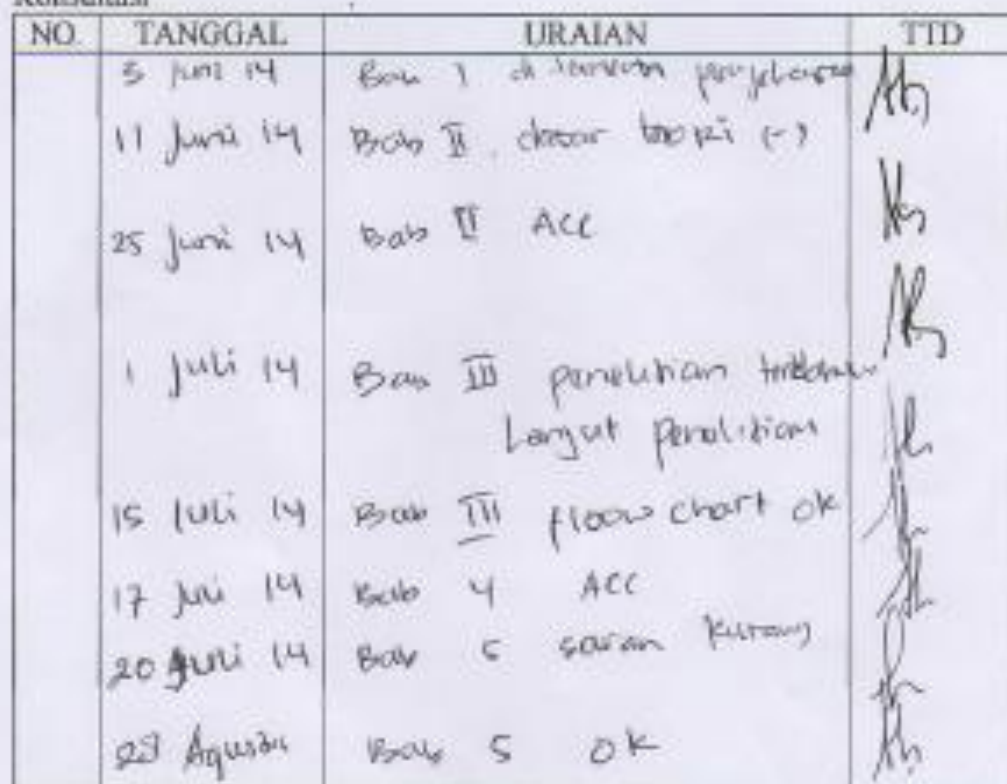 NO. TANGGAL URAIAN TTD
5 Juni 14 Bab 1
11 Juni 14 Bab II dasar teori (-)
25 Juni 14 Bab II ACC
1 Juli 14 Bab III penelitian
Lanjut penelitian
15 Juli 14 Bab III floow chart ok
17 Juli 14 Bab 4 ACC
20 Juli 14 Bab 5 saran kurang
Agustus Bab 5 ok